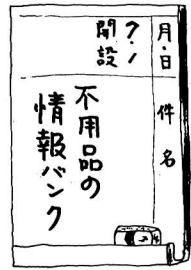 月・日
件名
7・1
開設
不用品の
情報バンク